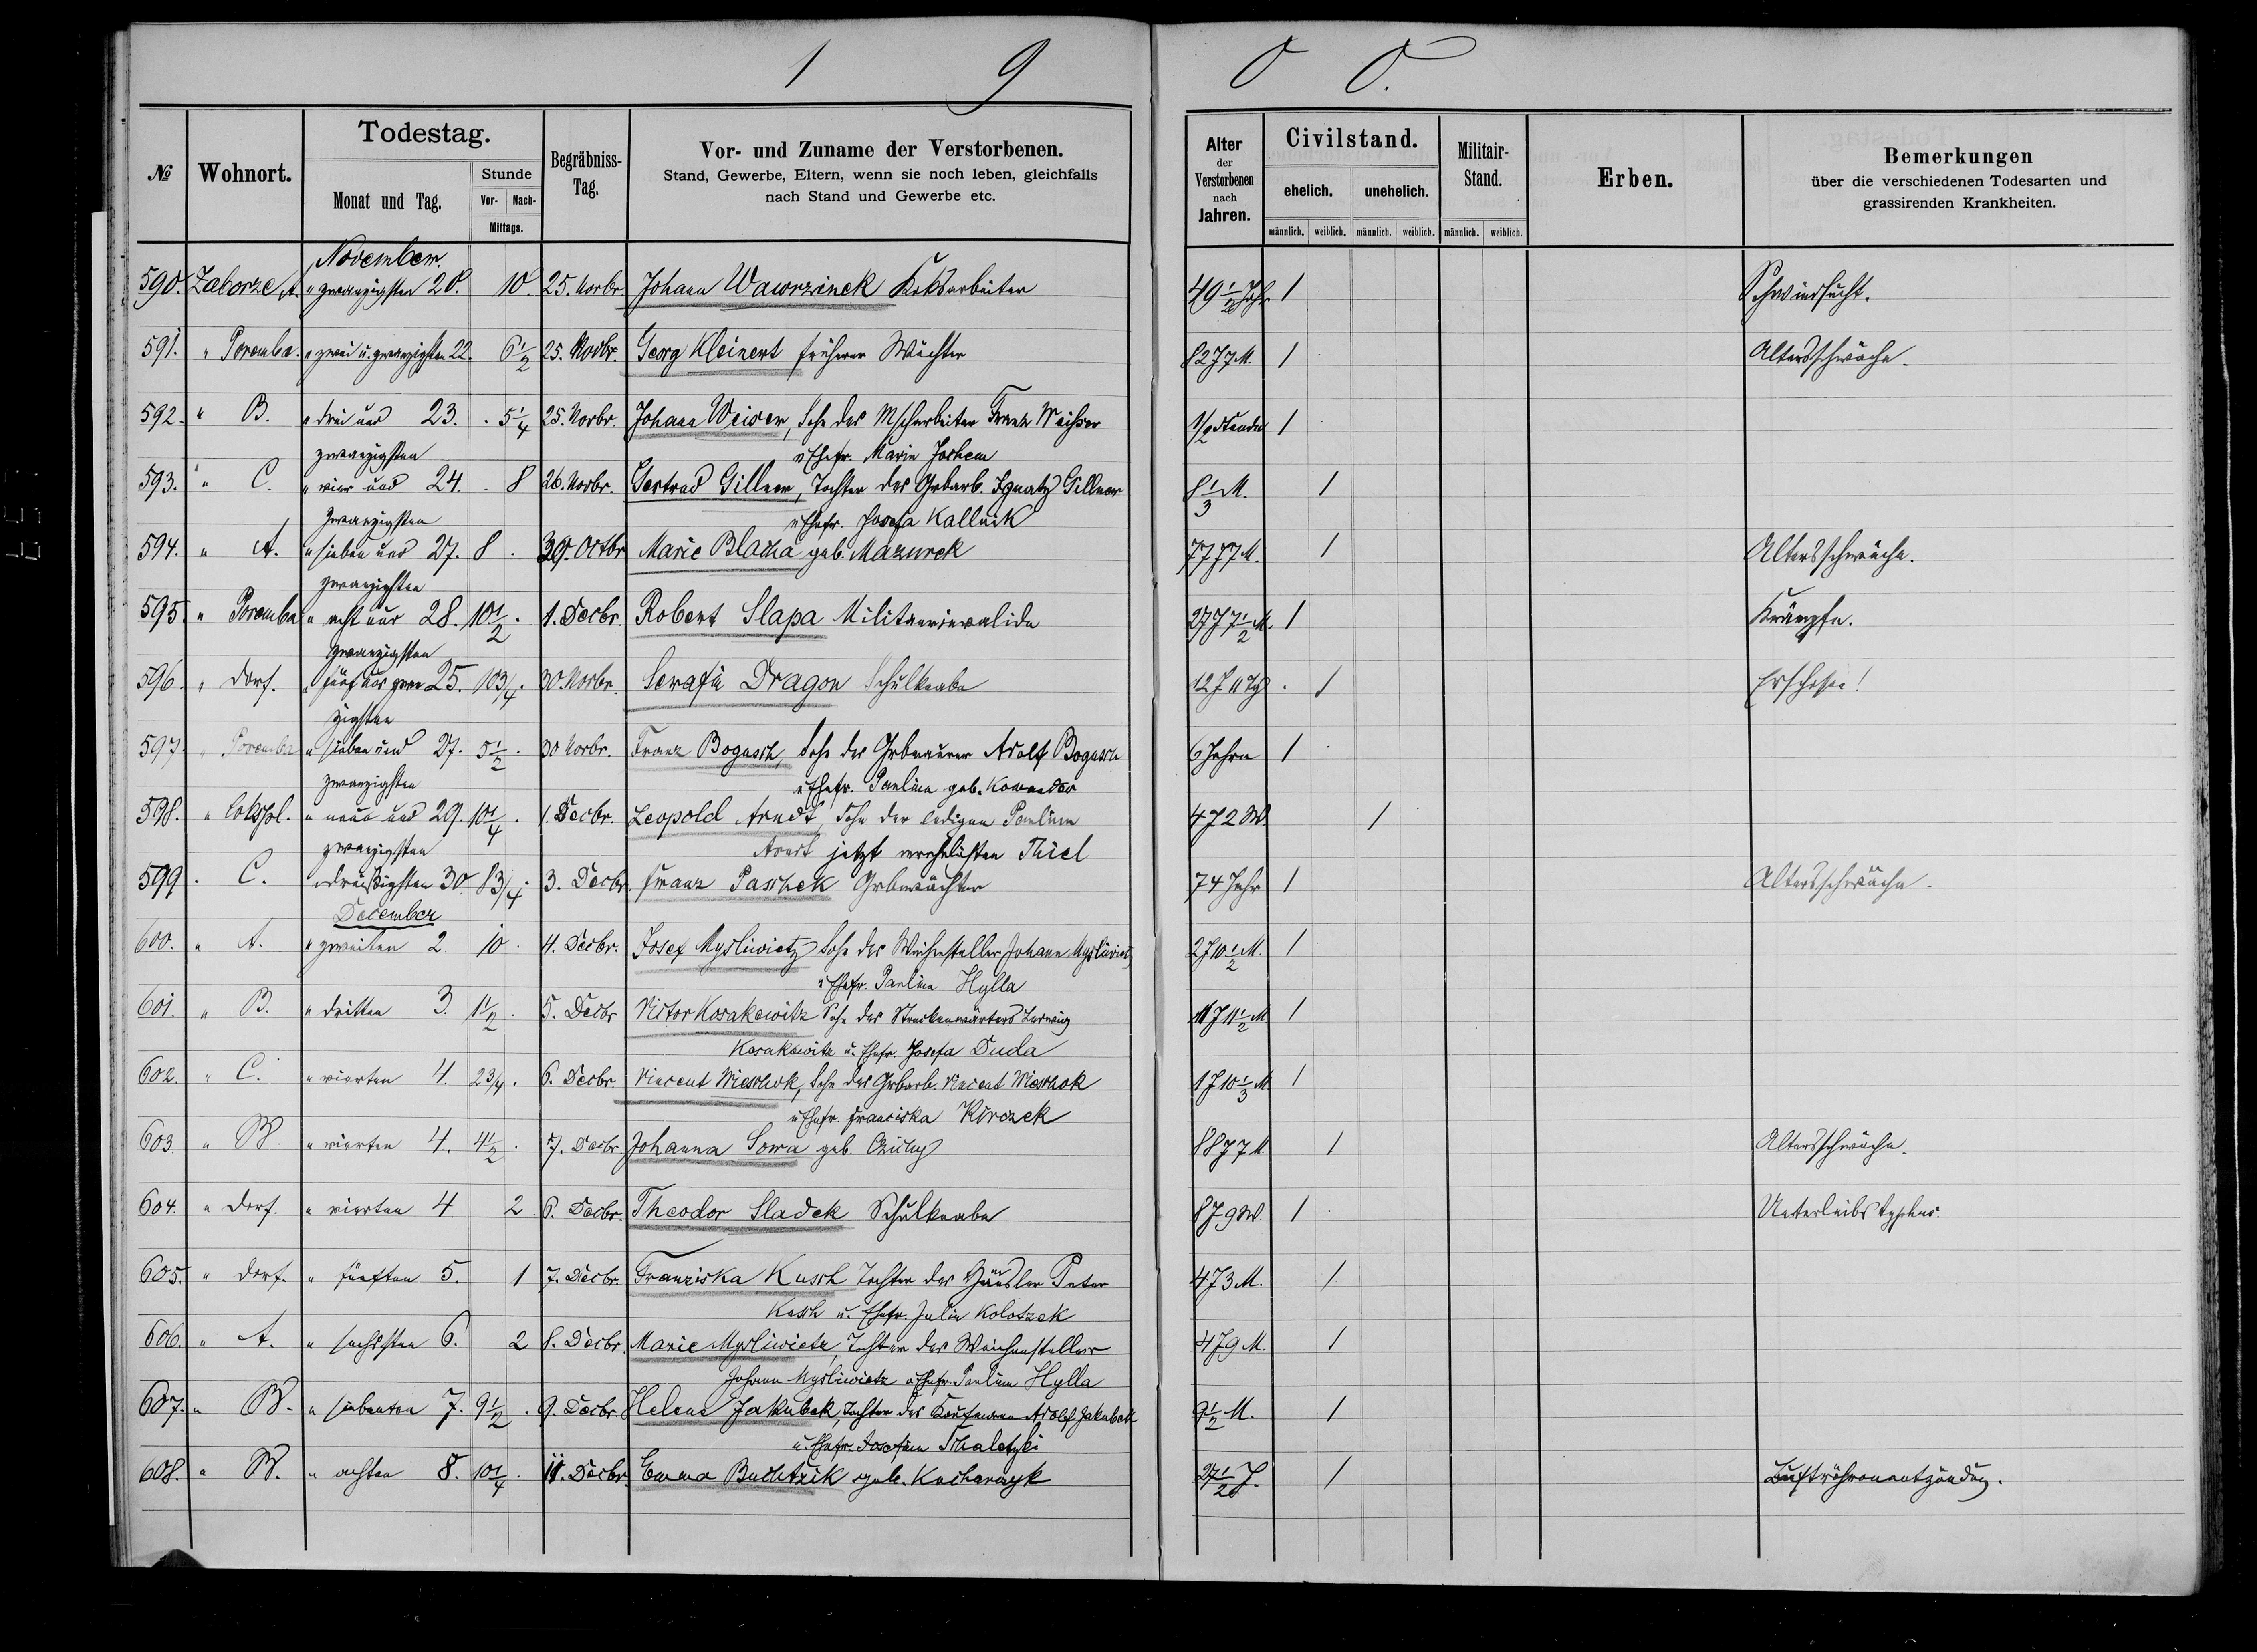 1 9 0 0.
Todestag.
№ Wohnort. Monat und Tag. Stunde Vor- Nach- Mittags. Begräbniss- Tag.
Vor- und Zuname der Verstorbenen.
Stand, Gewerbe, Eltern, wenn sie noch leben, gleichfalls
nach Stand und Gewerbe etc.
Alter der Verstorbenen nach Jahren.
Civilstand. ehelich. unehelich. männlich. weiblich. männlich. weiblich.
Militair- Stand. männlich. weiblich.
Erben.
Bemerkungen
über die verschiedenen Todesarten und
grassirenden Krankheiten.
November.
590. Zaborze A. " zwanzigsten 20. 10. 25. Novbr Johann Wawrzinek Koksarbeiter 49 1/2 Jahr 1 Schwindsucht.
591. " Poremba. " zwei u. zwanzigsten 22. 6 1/2 25. Novbr. Georg Kleinert früherer Wächter 82 J 7 M. 1 Altersschwäche.
592. " B. " drei und 23. 5 1/4 25. Novbr. Johann Weiser, Sohn des Franz 1/2 Stunde 1
zwanzigsten u Ehefr. Marie
593. " C. " vier und 24. 8 26. Novbr. Gertrud Gillner, Tochter des Grbarb. Ignatz Gillner 8 1/3 M. 1
zwanzigsten u Ehefr. Josefa Kallnik
594. " A. " sieben und 27. 8 30. Octbr Marie Blacha geb. Mazurek 77 J 7 M. 1 Altersschwäche.
zwanzigsten
595. " Poremba " acht und 28. 10 1/2 1. Decbr. Robert Slapa Militairinvalide 27 J 7 1/2 M. 1 Krämpfe.
zwanzigsten
596. " Dorf. " fünf und zwan 25. 10 3/4 30. Novbr. Serafin Dragon Schulknabe 12 J 11 Tg 1
zigsten
597. " Poremba " sieben und 27. 5 1/2 30 Novbr. Franz Bogusch, Sohn des Adolf Bogusch 6 Jahre 1
zwanzigsten u Ehefr. Paulina geb.
598. " " neun und 29. 10 1/4 1. Decbr. Leopold Arndt, Sohn der ledigen Paulina 4 J 2 W 1
zwanzigsten Arndt jetzt verehelichten Thiel
599. " C. " dreißigsten 30. 8 3/4 3. Decbr. Franz Paschek Grbwächter 74 Jahr 1 Altersschwäche.
December
600. " A. " zweiten 2 10. 4. Decbr. Josef Mysliwietz Sohn des Weichenstellers Johann Mysliwietz 2 J 10 1/2 M. 1
u Ehefr. Paulina Hylla
601. " B. " dritten 3. 1 1/2 5. Decbr Victor Korakewitz Sohn des Streckenwärters Ludwig 11 1/2 M 1
Korakewitz u. Ehefr. Josefa Duda
602. " C. " vierten 4. 2 3/4 6. Decbr Vincent Mieschok, Sohn des Grbarb. Vincent Mieschok 1 J 10 1/3 M. 1
u Ehefr. Franciska Kurczek
603. " W. " vierten 4. 4 1/2 7. Decbr Johanna Sowa geb. 88 J 7 M. 1 Altersschwäche.
604. " Dorf. " vierten 4 2 6. Decbr. Theodor Sladek Schulknabe 8 J 9 W. 1 Unterleibs typhus.
605. " Dorf. " fünften 5. 1 7. Decbr. Franziska Kusch Tochter des Häusler Peter 4 J 3 M. 1
Kusch u. Ehefr. Julie Kolotzek
606. " A. " sechsten 6. 2 8. Decbr. Marie Mysliwietz, Tochter des Weichenstellers 4 J 9 M. 1
Johann Mysliwietz u Ehefr. Paulina Hylla
607. " W. " siebenten 7. 9 1/2 9. Decbr. Helene Jakubek, Tochter des Kaufmann Adolf Jakubek 9 1/2 M. 1
u. Ehefr. Josefine
608. " W. " achten 8. 10 1/4 11. Decbr. Emma Buchtzik geb. Kucharczyk 27 1/2 J. 1 Luftröhrenentzündg.